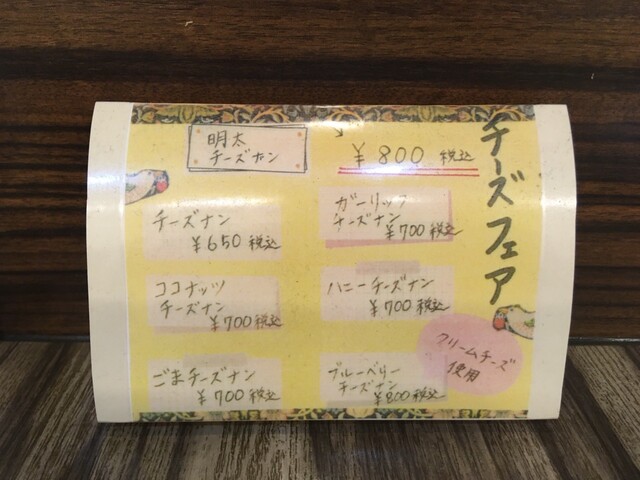 チーズフェア
明太
チーズナン
¥800 税込
チーズナン
¥650 税込
ガーリック
チーズナン
¥700 税込
ココナッツ
チーズナン
¥700 税込
ハニーチーズナン
¥700 税込
ごまチーズナン
¥700 税込
ブルーベリー
チーズナン
¥800 税込
クリームチーズ
使用